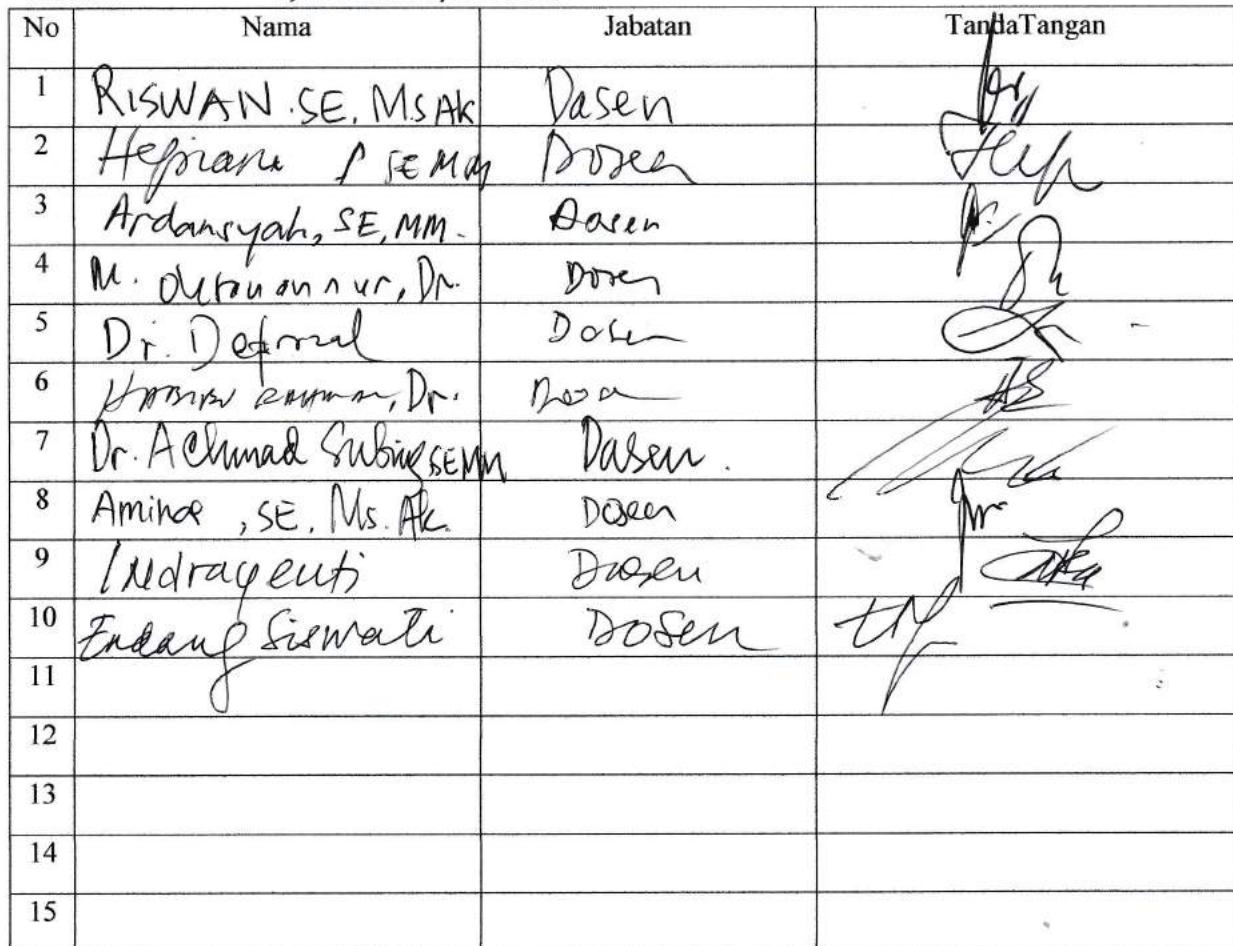 No Nama Jabatan TandaTangan
1 RISWAN. SE. M.S AK Dosen
2 SE MM Dosen
3 Ardansyah, SE, MM. Dosen
4 M. Dr. Dosen
5 Dr. Defrizal Dosen
6 Dr. Dosen
7 Dr. Achmad Subing SE MM Dosen.
8 Aminah, SE. Ms. Ak. Dosen
9 Indrayenti Dosen
10 Endang Siswati Dosen
11
12
13
14
15